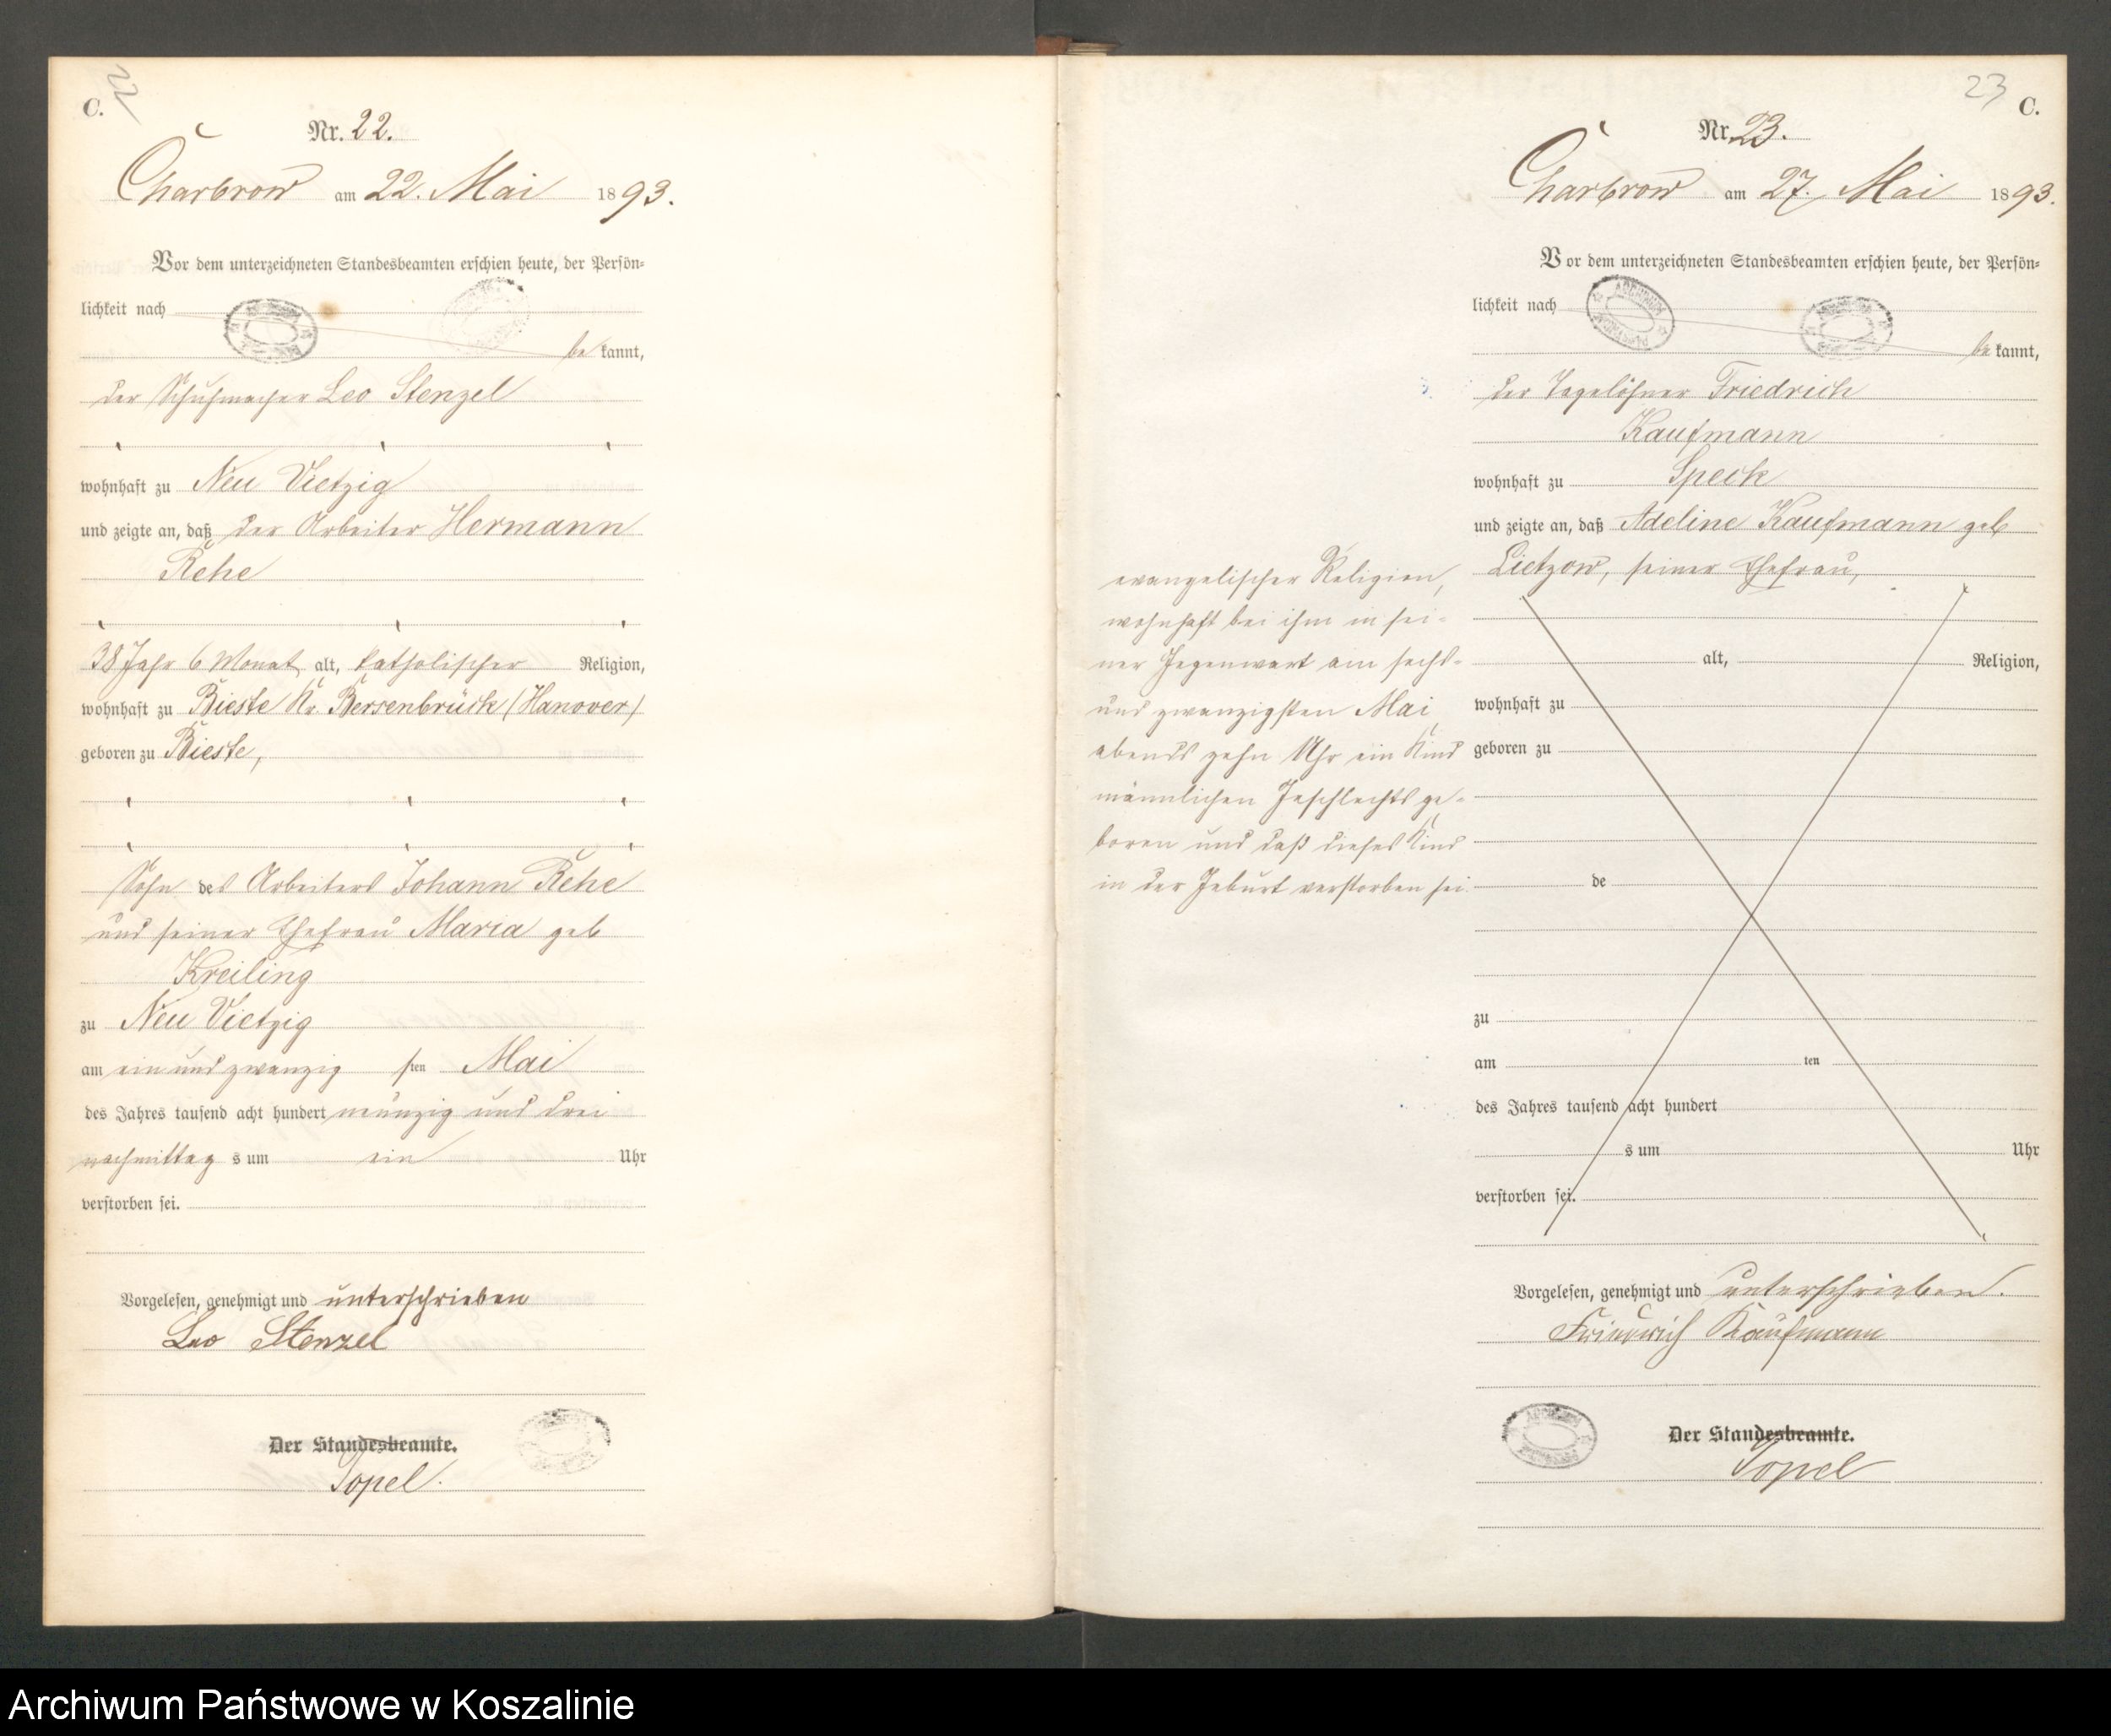 C.
22
Nr. 22.
Charbrow am 22. Mai 1893.
Vor dem unterzeichneten Standesbeamten erschien heute, der Persön-
lichkeit nach
bekannt,
der Schuhmacher Leo Stenzel
wohnhaft zu Neu Vietzig
und zeigte an, daß der Arbeiter Hermann
Rehe
38 Jahr 6 Monat alt, katholischer Religion,
wohnhaft zu Bieste Kr. Bersenbrück (Hanover)
geboren zu Bieste,
Sohn des Arbeiters Johann Rehe
und seiner Ehefrau Maria geb
Kreiling
zu Neu Vietzig
am ein und zwanzigsten Mai
des Jahres tausend acht hundert neunzig und drei
nachmittags um ein Uhr
verstorben sei.
Vorgelesen, genehmigt und unterschrieben
Leo Stenzel
Der Standesbeamte.
Topel.
23
C.
Nr. 23.
Charbrow am 27. Mai 1893.
Vor dem unterzeichneten Standesbeamten erschien heute, der Persön-
lichkeit nach
bekannt,
der Tagelöhner Friedrich
Kaufmann
wohnhaft zu Speck
und zeigte an, daß Adeline Kaufmann geb
Lietzow, seiner Ehefrau,
evangelischer Religion,
wohnhaft bei ihm in sei-
ner Gegenwart am sechs-
und zwanzigsten Mai,
abends zehn Uhr ein Kind
männlichen Geschlechts ge-
boren und daß dieses Kind
in der Geburt verstorben sei.
alt, Religion,
wohnhaft zu
geboren zu
de
zu
am ten
des Jahres tausend acht hundert
s um Uhr
verstorben sei.
Vorgelesen, genehmigt und unterschrieben.
Friedrich Kaufmann
Der Standesbeamte.
Topel
Archiwum Państwowe w Koszalinie